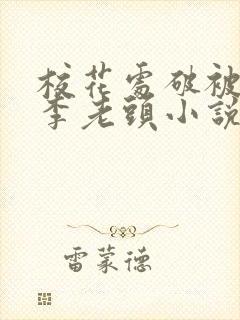 校花處破被
李老頭小説
雷蒙德